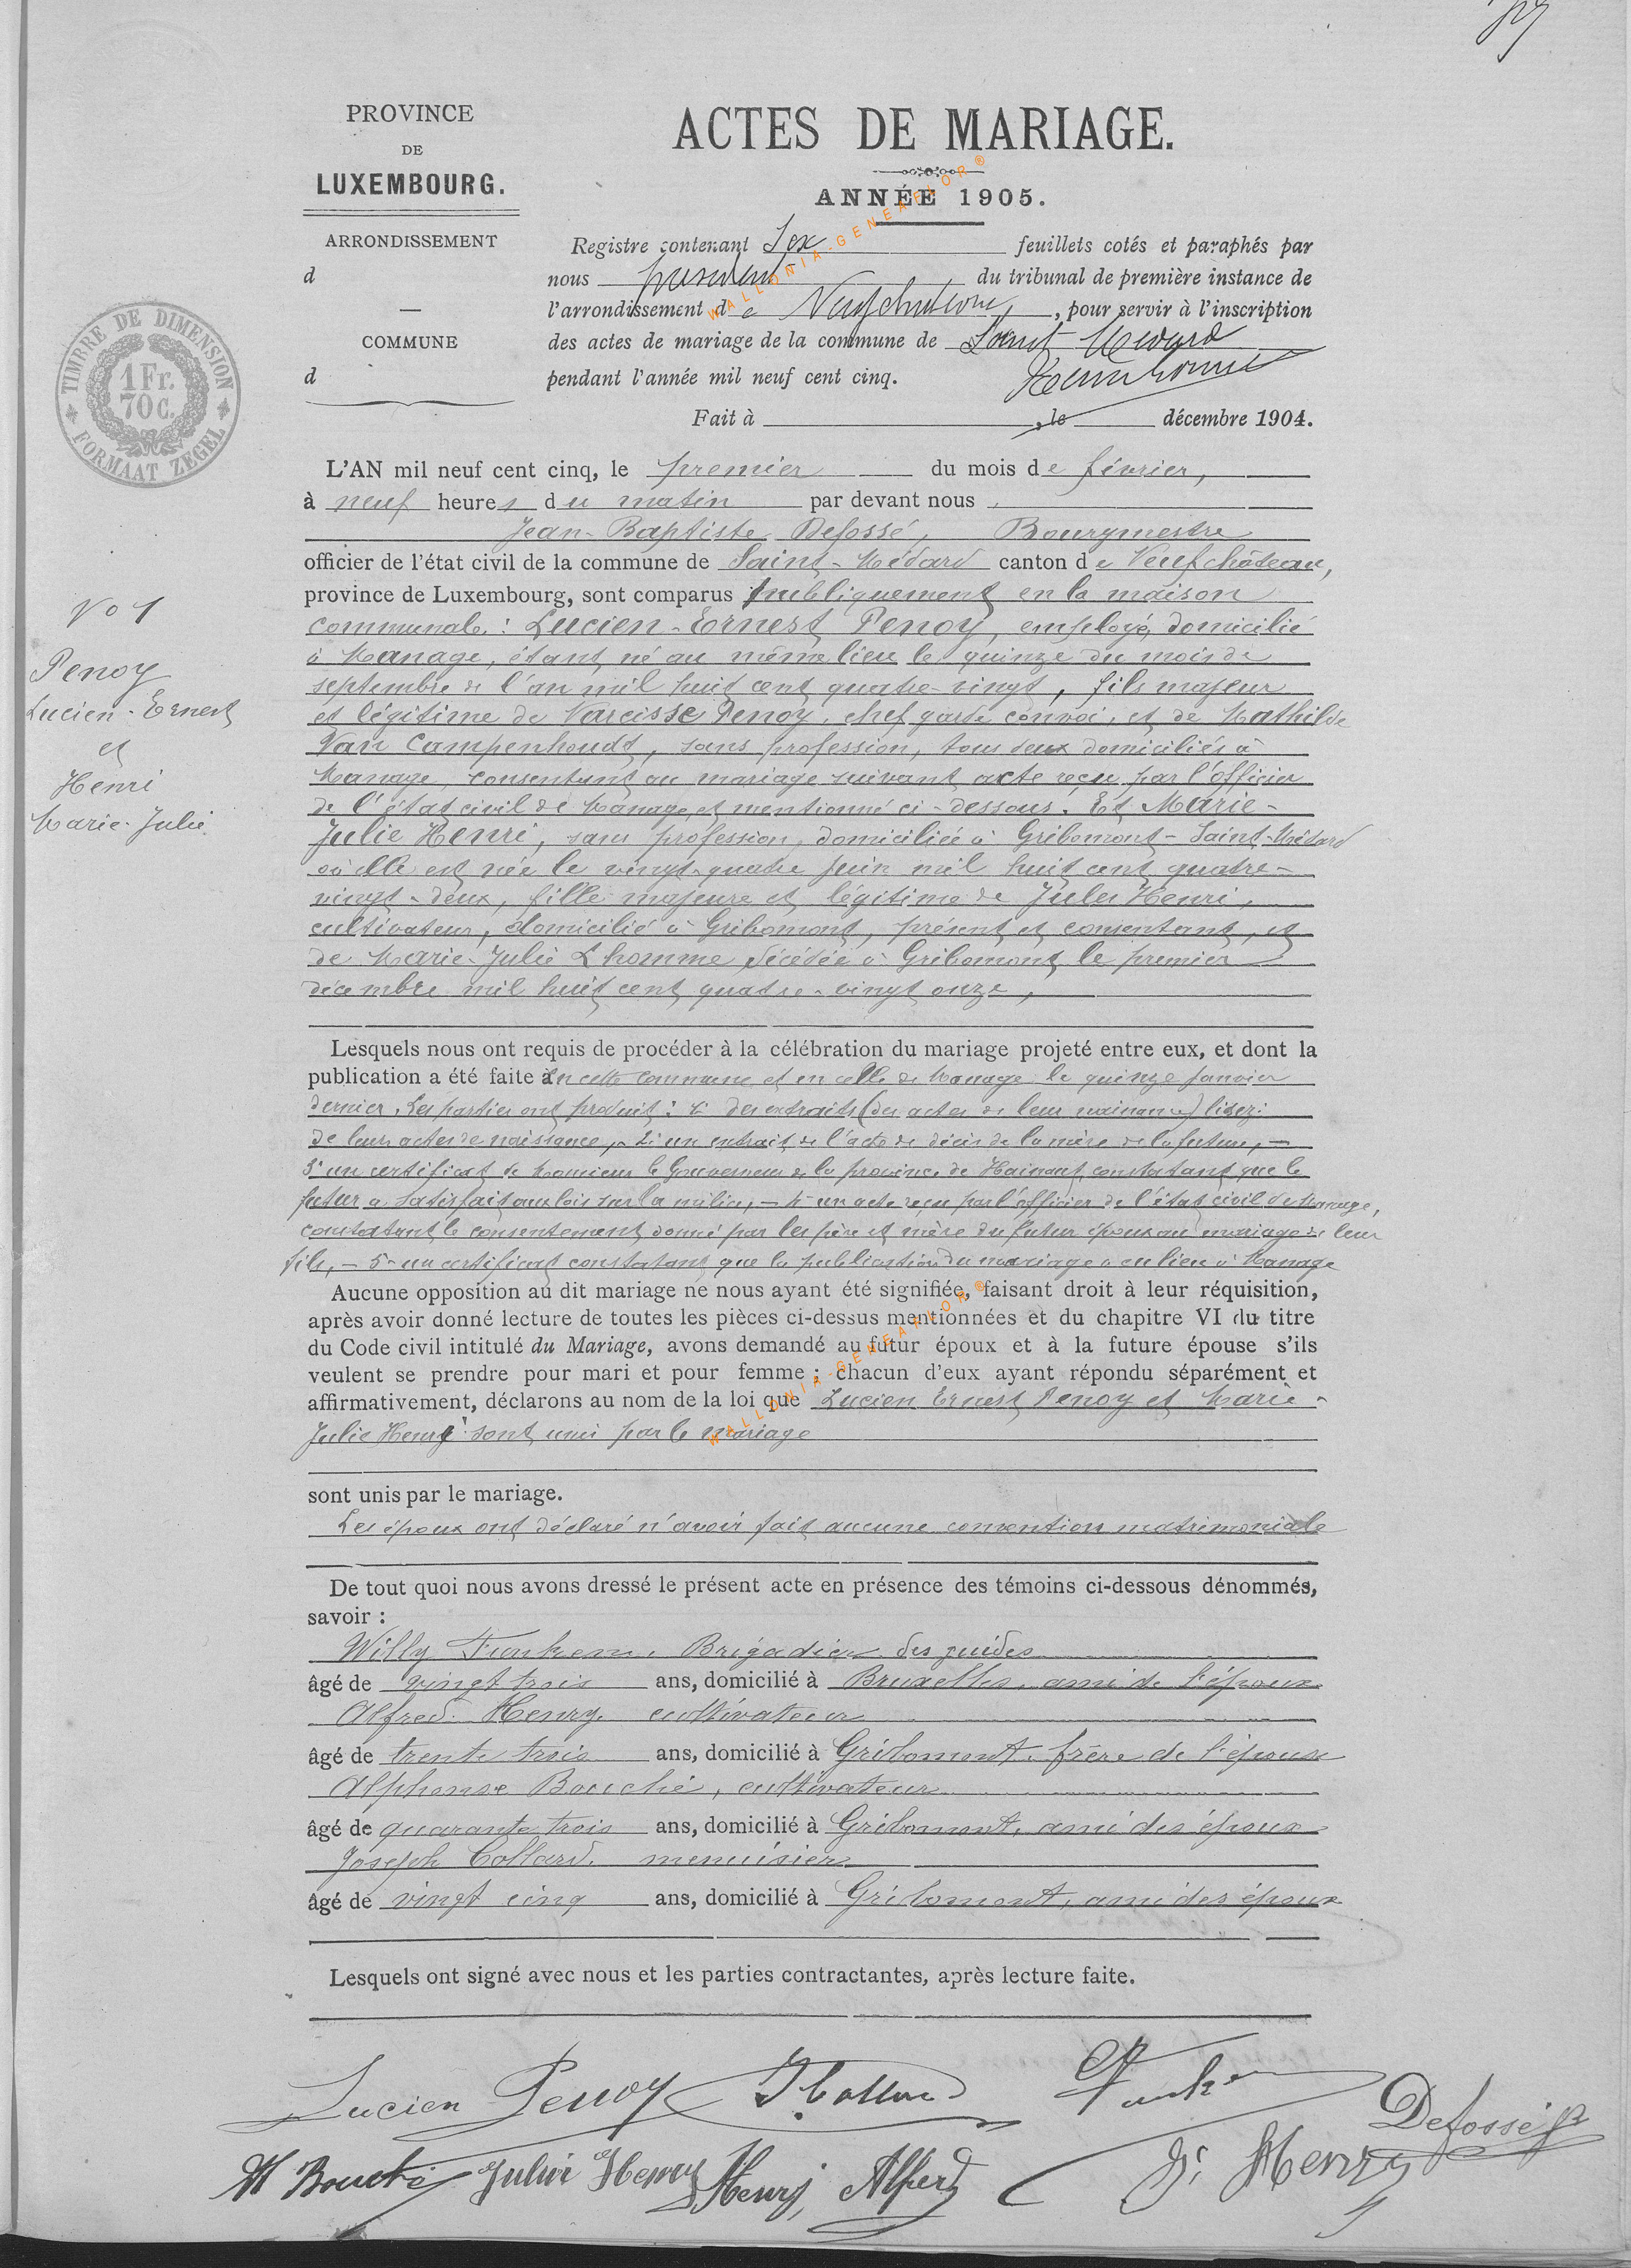 PROVINCE
DE
LUXEMBOURG.
ARRONDISSEMENT
d
COMMUNE
d
ACTES DE MARIAGE.
ANNÉE 1905.
Registre contenant Sex feuillets cotés et paraphés par
nous président du tribunal de première instance de
l'arrondissement de Neufchateau, pour servir à l'inscription
des actes de mariage de la commune de Saint Medard
pendant l'année mil neuf cent cinq.
Fait à , le décembre 1904.
TIMBRE DE DIMENSION
1 Fr.
70 C.
FORMAAT ZEGEL
L'AN mil neuf cent cinq, le premier du mois de février,
à neuf heures du matin par devant nous
Jean-Baptiste Defossé, Bourgmestre
officier de l'état civil de la commune de Saint-Médard canton de Neufchâteau,
province de Luxembourg, sont comparus publiquement en la maison
communale : Lucien-Ernest Penoy, employé, domicilié
à Manage, étant né au même lieu le quinze du mois de
septembre de l'an mil huit cent quatre-vingt, fils majeur
et légitime de Narcisse Penoy, chef garde convoi, et de Mathilde
Van Campenhoudt, sans profession, tous deux domiciliés à
Manage, consentant au mariage suivant acte reçu par l'officier
de l'état civil de Manage, et mentionné ci-dessous. Et Marie-
Julie Henri, sans profession, domiciliée à Gribomont-Saint-Médard
où elle est née le vingt-quatre juin mil huit cent quatre-
vingt-deux, fille majeure et légitime de Jules Henri,
cultivateur, domicilié à Gribomont, présent et consentant, et
de Marie-Julie Lhomme décédée à Gribomont le premier
décembre mil huit cent quatre-vingt onze,
No 1
Penoy
Lucien-Ernest
et
Henri
Marie-Julie
Lesquels nous ont requis de procéder à la célébration du mariage projeté entre eux, et dont la
publication a été faite en cette commune et en celle de Manage le quinze janvier
dernier. Les parties ont produit : 1° des extraits (des actes de leur naissance) lisez :
de leurs actes de naissance, 2° un extrait de l'acte de décès de la mère de la future, —
3° un certificat de Monsieur le Gouverneur de la province de Hainaut constatant que le
futur a satisfait aux lois sur la milice, — 4° un acte reçu par l'officier de l'état civil de Manage,
constatant le consentement donné par les père et mère du futur époux au mariage de leur
fils, — 5° un certificat constatant que la publication du mariage a eu lieu à Manage
Aucune opposition au dit mariage ne nous ayant été signifiée, faisant droit à leur réquisition,
après avoir donné lecture de toutes les pièces ci-dessus mentionnées et du chapitre VI du titre
du Code civil intitulé du Mariage, avons demandé au futur époux et à la future épouse s'ils
veulent se prendre pour mari et pour femme ; chacun d'eux ayant répondu séparément et
affirmativement, déclarons au nom de la loi que Lucien Ernest Penoy et Marie-
Julie Henri sont unis par le mariage
sont unis par le mariage.
Les époux ont déclaré n'avoir fait aucune convention matrimoniale
De tout quoi nous avons dressé le présent acte en présence des témoins ci-dessous dénommés,
savoir :
Willy Funken, Brigadier des guides
âgé de vingt trois ans, domicilié à Bruxelles, ami de l'époux
Alfred Henry, cultivateur
âgé de trente trois ans, domicilié à Gribomont, frère de l'épouse
Alphonse Bouché, cultivateur
âgé de quarante trois ans, domicilié à Gribomont, ami des époux
Joseph Collard, menuisier
âgé de vingt cinq ans, domicilié à Gribomont, ami des époux
Lesquels ont signé avec nous et les parties contractantes, après lecture faite.
Lucien Penoy J Collard Funken Defossé
A Bouché Julie Henry Henry Alfred J. Henry
WALLONIA-GENEAFLOR®
WALLONIA-GENEAFLOR®